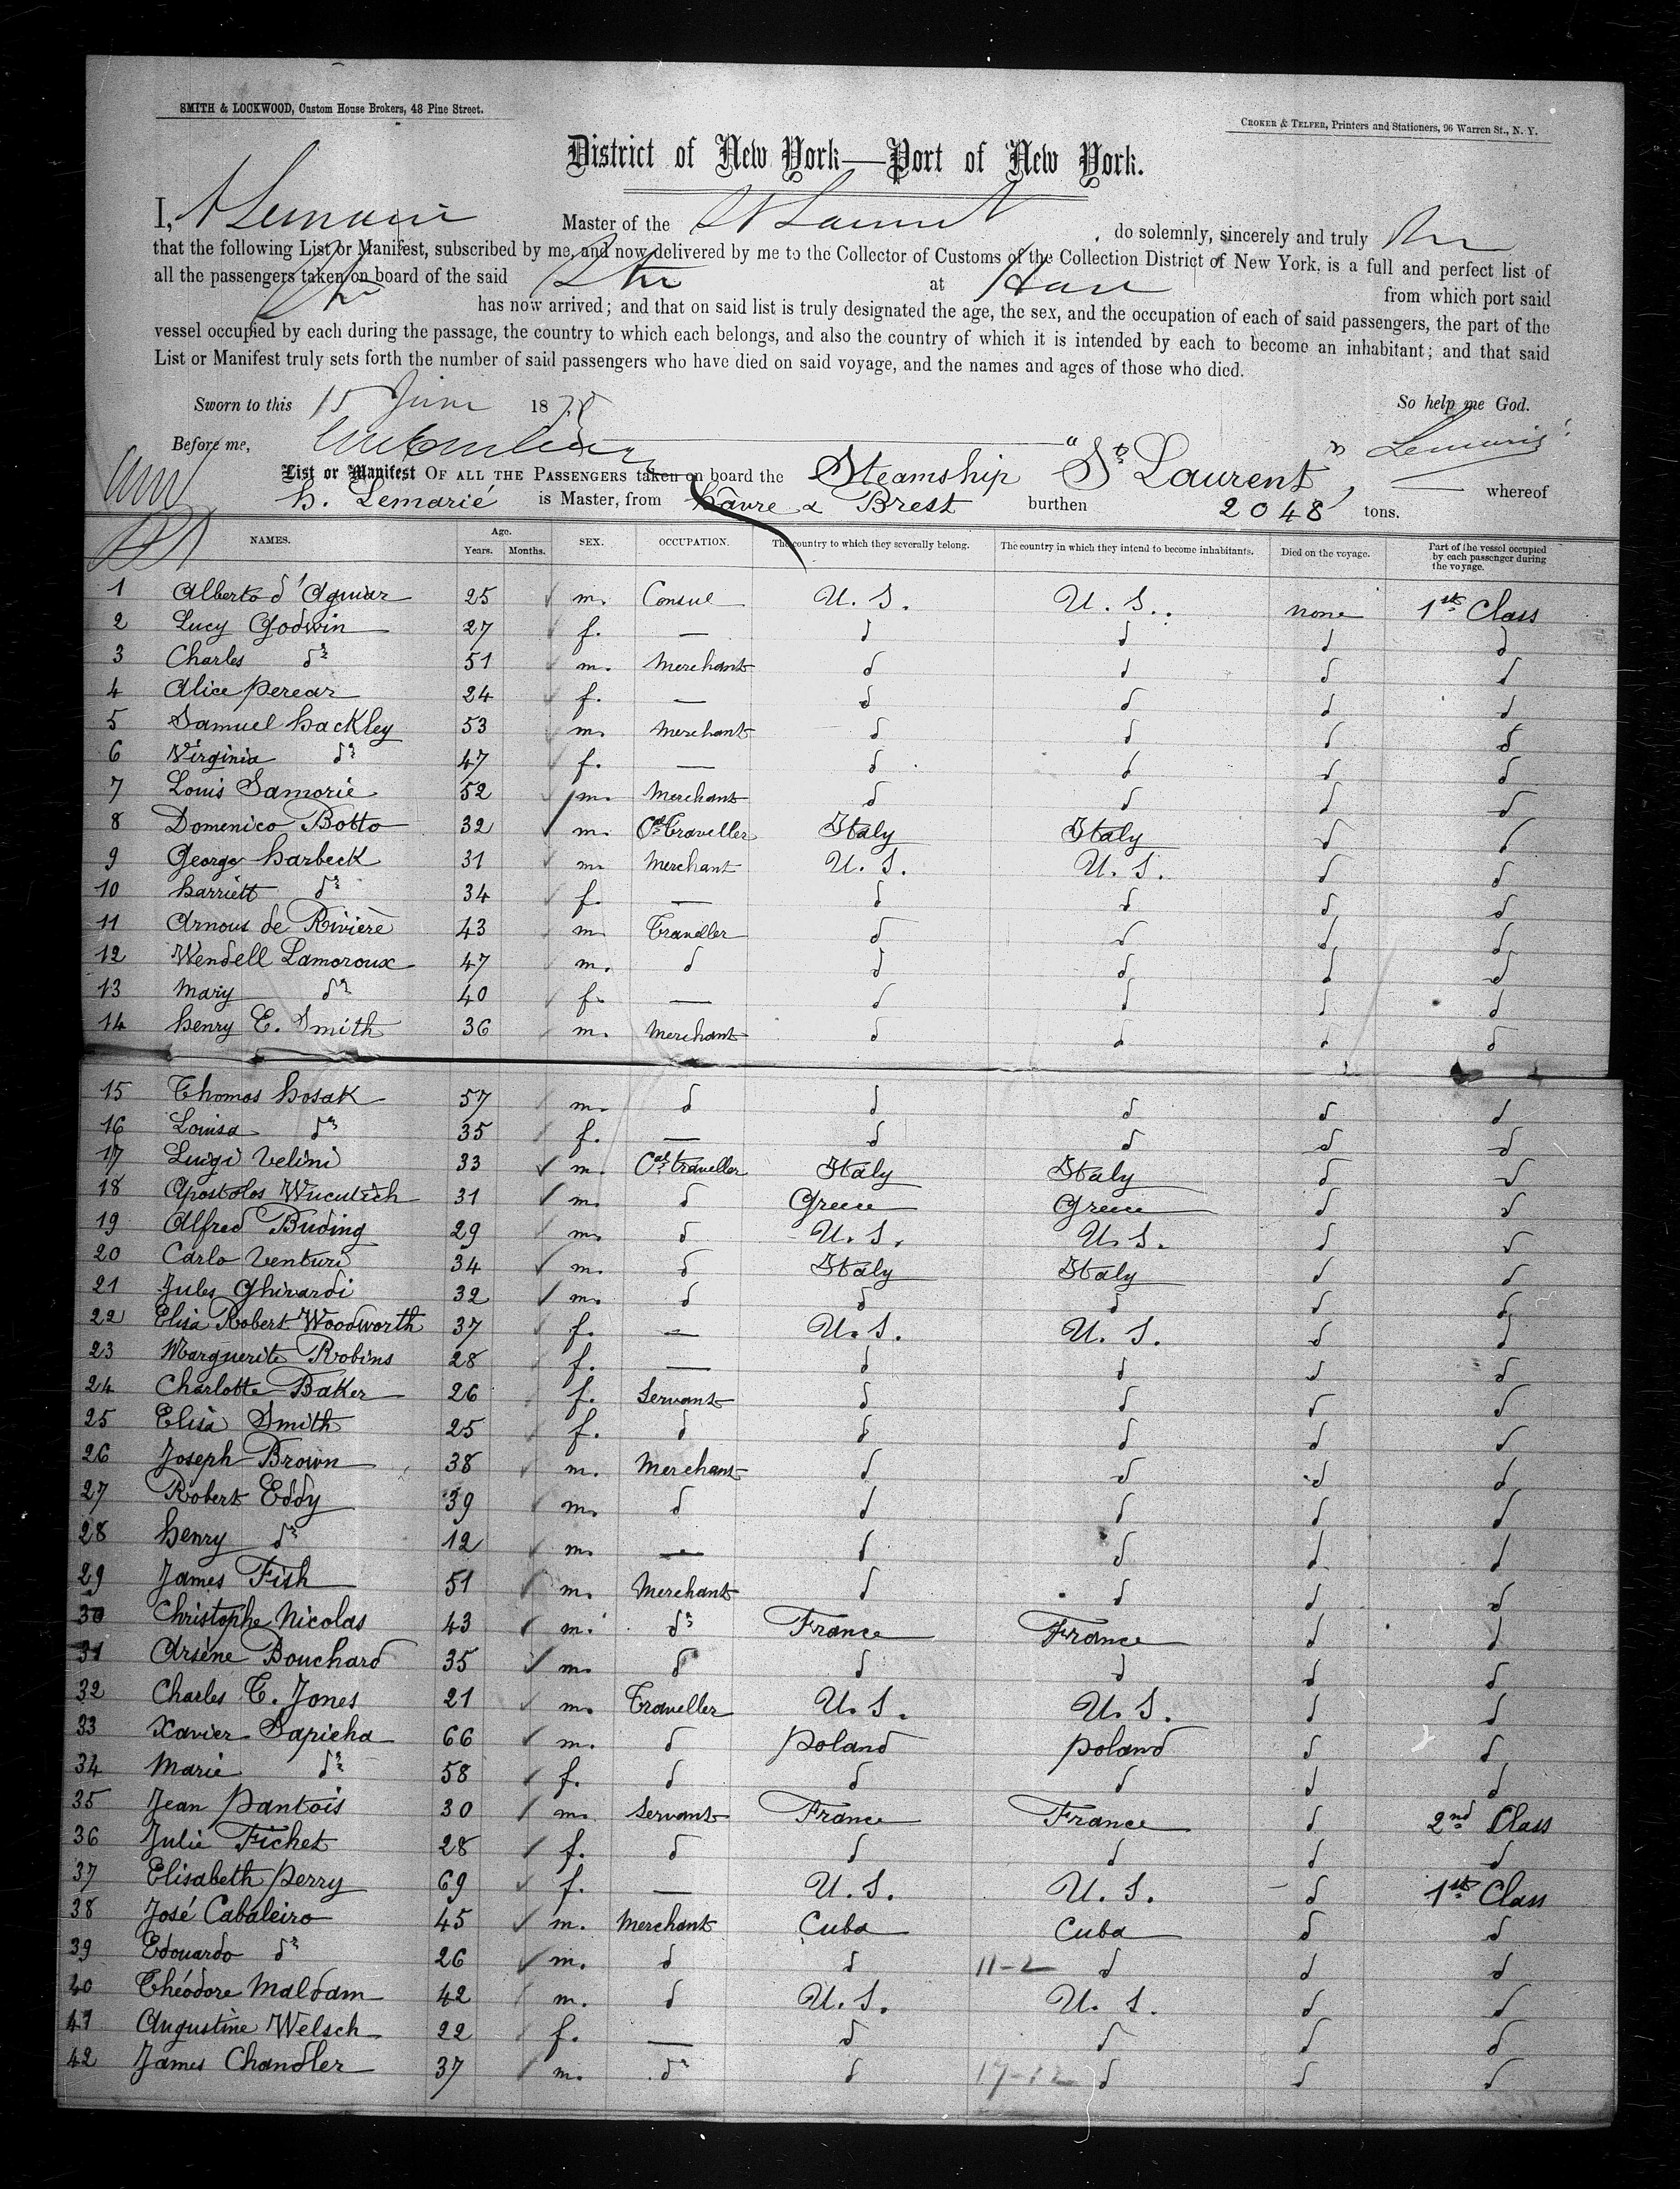 SMITH & LOCKWOOD, Custom House Brokers, 48 Pine Street.
CROKER & TELFER, Printers and Stationers, 96 Warren St., N. Y.
District of New York—Port of New York.
I, Lemarié Master of the St Laurent , do solemnly, sincerely and truly
that the following List or Manifest, subscribed by me, and now delivered by me to the Collector of Customs of the Collection District of New York, is a full and perfect list of
all the passengers taken on board of the said Str at Havre from which port said
Str has now arrived; and that on said list is truly designated the age, the sex, and the occupation of each of said passengers, the part of the
vessel occupied by each during the passage, the country to which each belongs, and also the country of which it is intended by each to become an inhabitant; and that said
List or Manifest truly sets forth the number of said passengers who have died on said voyage, and the names and ages of those who died.
Sworn to this 15 June 1878 So help me God.
Before me, Lemarié
List or Manifest OF ALL THE PASSENGERS taken on board the Steamship "St Laurent", whereof
h. Lemarié is Master, from hâvre & Brest burthen 2048 tons.
NAMES. Age. Years. Months. SEX. OCCUPATION. The country to which they severally belong. The country in which they intend to become inhabitants. Died on the voyage. Part of the vessel occupied by each passenger during the voyage.
1 Alberto d'Aguiar 25 m. Consul U. S. U. S. none 1st Class
2 Lucy Godwin 27 f. — d d d d
3 Charles do 51 m. Merchant d d d d
4 Alice Perear 24 f. — d d d d
5 Samuel hackley 53 m. Merchant d d d d
6 Virginia do 47 f. — d d d d
7 Louis Samorie 52 m. Merchant d d d d
8 Domenico Botto 32 m. Cal traveller Italy Italy d d
9 George harbeck 31 m. Merchant U. S. U. S. d d
10 harriett do 34 f. — d d d d
11 Arnous de Rivière 43 m. Traveller d d d d
12 Wendell Lamoroux 47 m. d d d d d
13 Mary do 40 f. — d d d d
14 henry E. Smith 36 m. Merchant d d d d
15 Thomas hosak 57 m. d d d d d
16 Louisa do 35 f. — d d d d
17 Luigi Velini 33 m. Cal traveller Italy Italy d d
18 Apostolos Wucutich 31 m. d Greece Greece d d
19 Alfred Buding 29 m. d U. S. U. S. d d
20 Carlo Venturi 34 m. d Italy Italy d d
21 Jules Ghirardi 32 m. d d d d d
22 Elisa Robert Woodworth 37 f. — U. S. U. S. d d
23 Marguerite Robins 28 f. — d d d d
24 Charlotte Baker 26 f. Servant d d d d
25 Elisa Smith 25 f. d d d d d
26 Joseph Brown 38 m. Merchant d d d d
27 Robert Eddy 39 m. d d d d d
28 henry do 12 m. — d d d d
29 James Fish 51 m. Merchant d d d d
30 Christophe Nicolas 43 m. do France France d d
31 Arsène Bouchard 35 m. d d d d d
32 Charles C. Jones 21 m. Traveller U. S. U. S. d d
33 Xavier Sapieha 66 m. d Poland Poland d d
34 Marie do 58 f. d d d d d
35 Jean Pantois 30 m. Servant France France d 2nd Class
36 Julie Fichet 28 f. d d d d d
37 Elisabeth Perry 69 f. — U. S. U. S. d 1st Class
38 José Cabaleiro 45 m. Merchant Cuba Cuba d d
39 Edouardo do 26 m. d d 11-2 d d d
40 Théodore Maldam 42 m. d U. S. U. S. d d
41 Augustine Welsch 22 f. — d d d d
42 James Chandler 37 m. do d 17-12 d d d